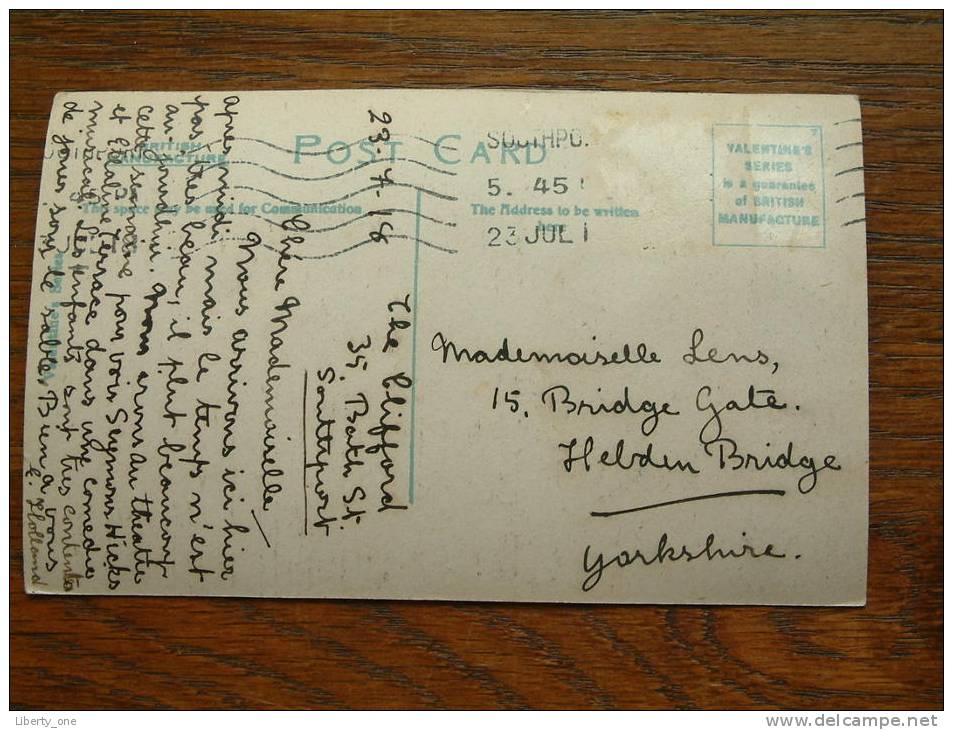 BRITISH
MANUFACTURE
POST CARD
This space may be used for Communication
The Address to be written
here
SOUTHPO.
5. 45
23 JUL 1
VALENTINE'S
SERIES
is a guarantee
of BRITISH
MANUFACTURE
23.7.18
The Clifford
35, Bath St.
Southport
Chère Mademoiselle
Nous arrivions ici hier
après midi, mais le temps n'est
pas très beau, il plut beaucoup
aujourdhui. Nous irons au theatre
cette semaine pour voir Seymour Hicks
et Ellaline Terrace dans une comedie
musical. Les enfants sont tres contents
de jouer sous le sable. Bien a vous
E. Holland
Mademoiselle Lens,
15, Bridge Gate.
Hebden Bridge
Yorkshire.
Liberty_one
www.delcampe.net